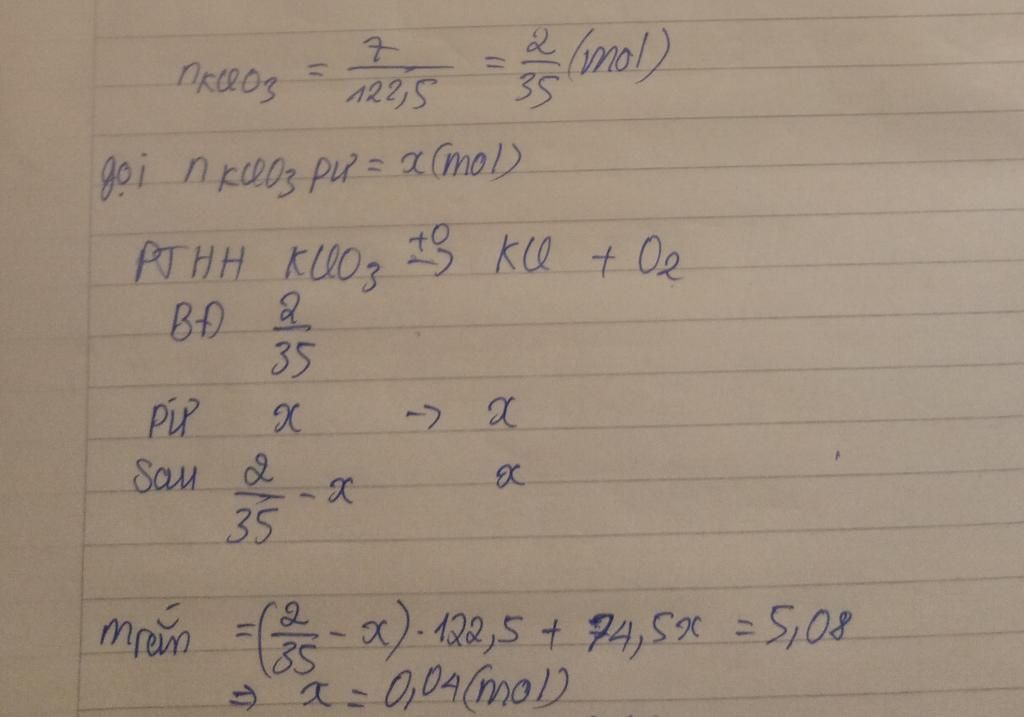 nKClO3 = 7/122,5 = 2/35 (mol)
gọi nKClO3 PƯ = x(mol)
PTHH KClO3 +O→ KCl + O2
BĐ 2/35
PƯ x -> x
Sau 2/35 - x x
mrắn = (2/35 - x) . 122,5 + 74,5x = 5,08
=> x = 0,04(mol)